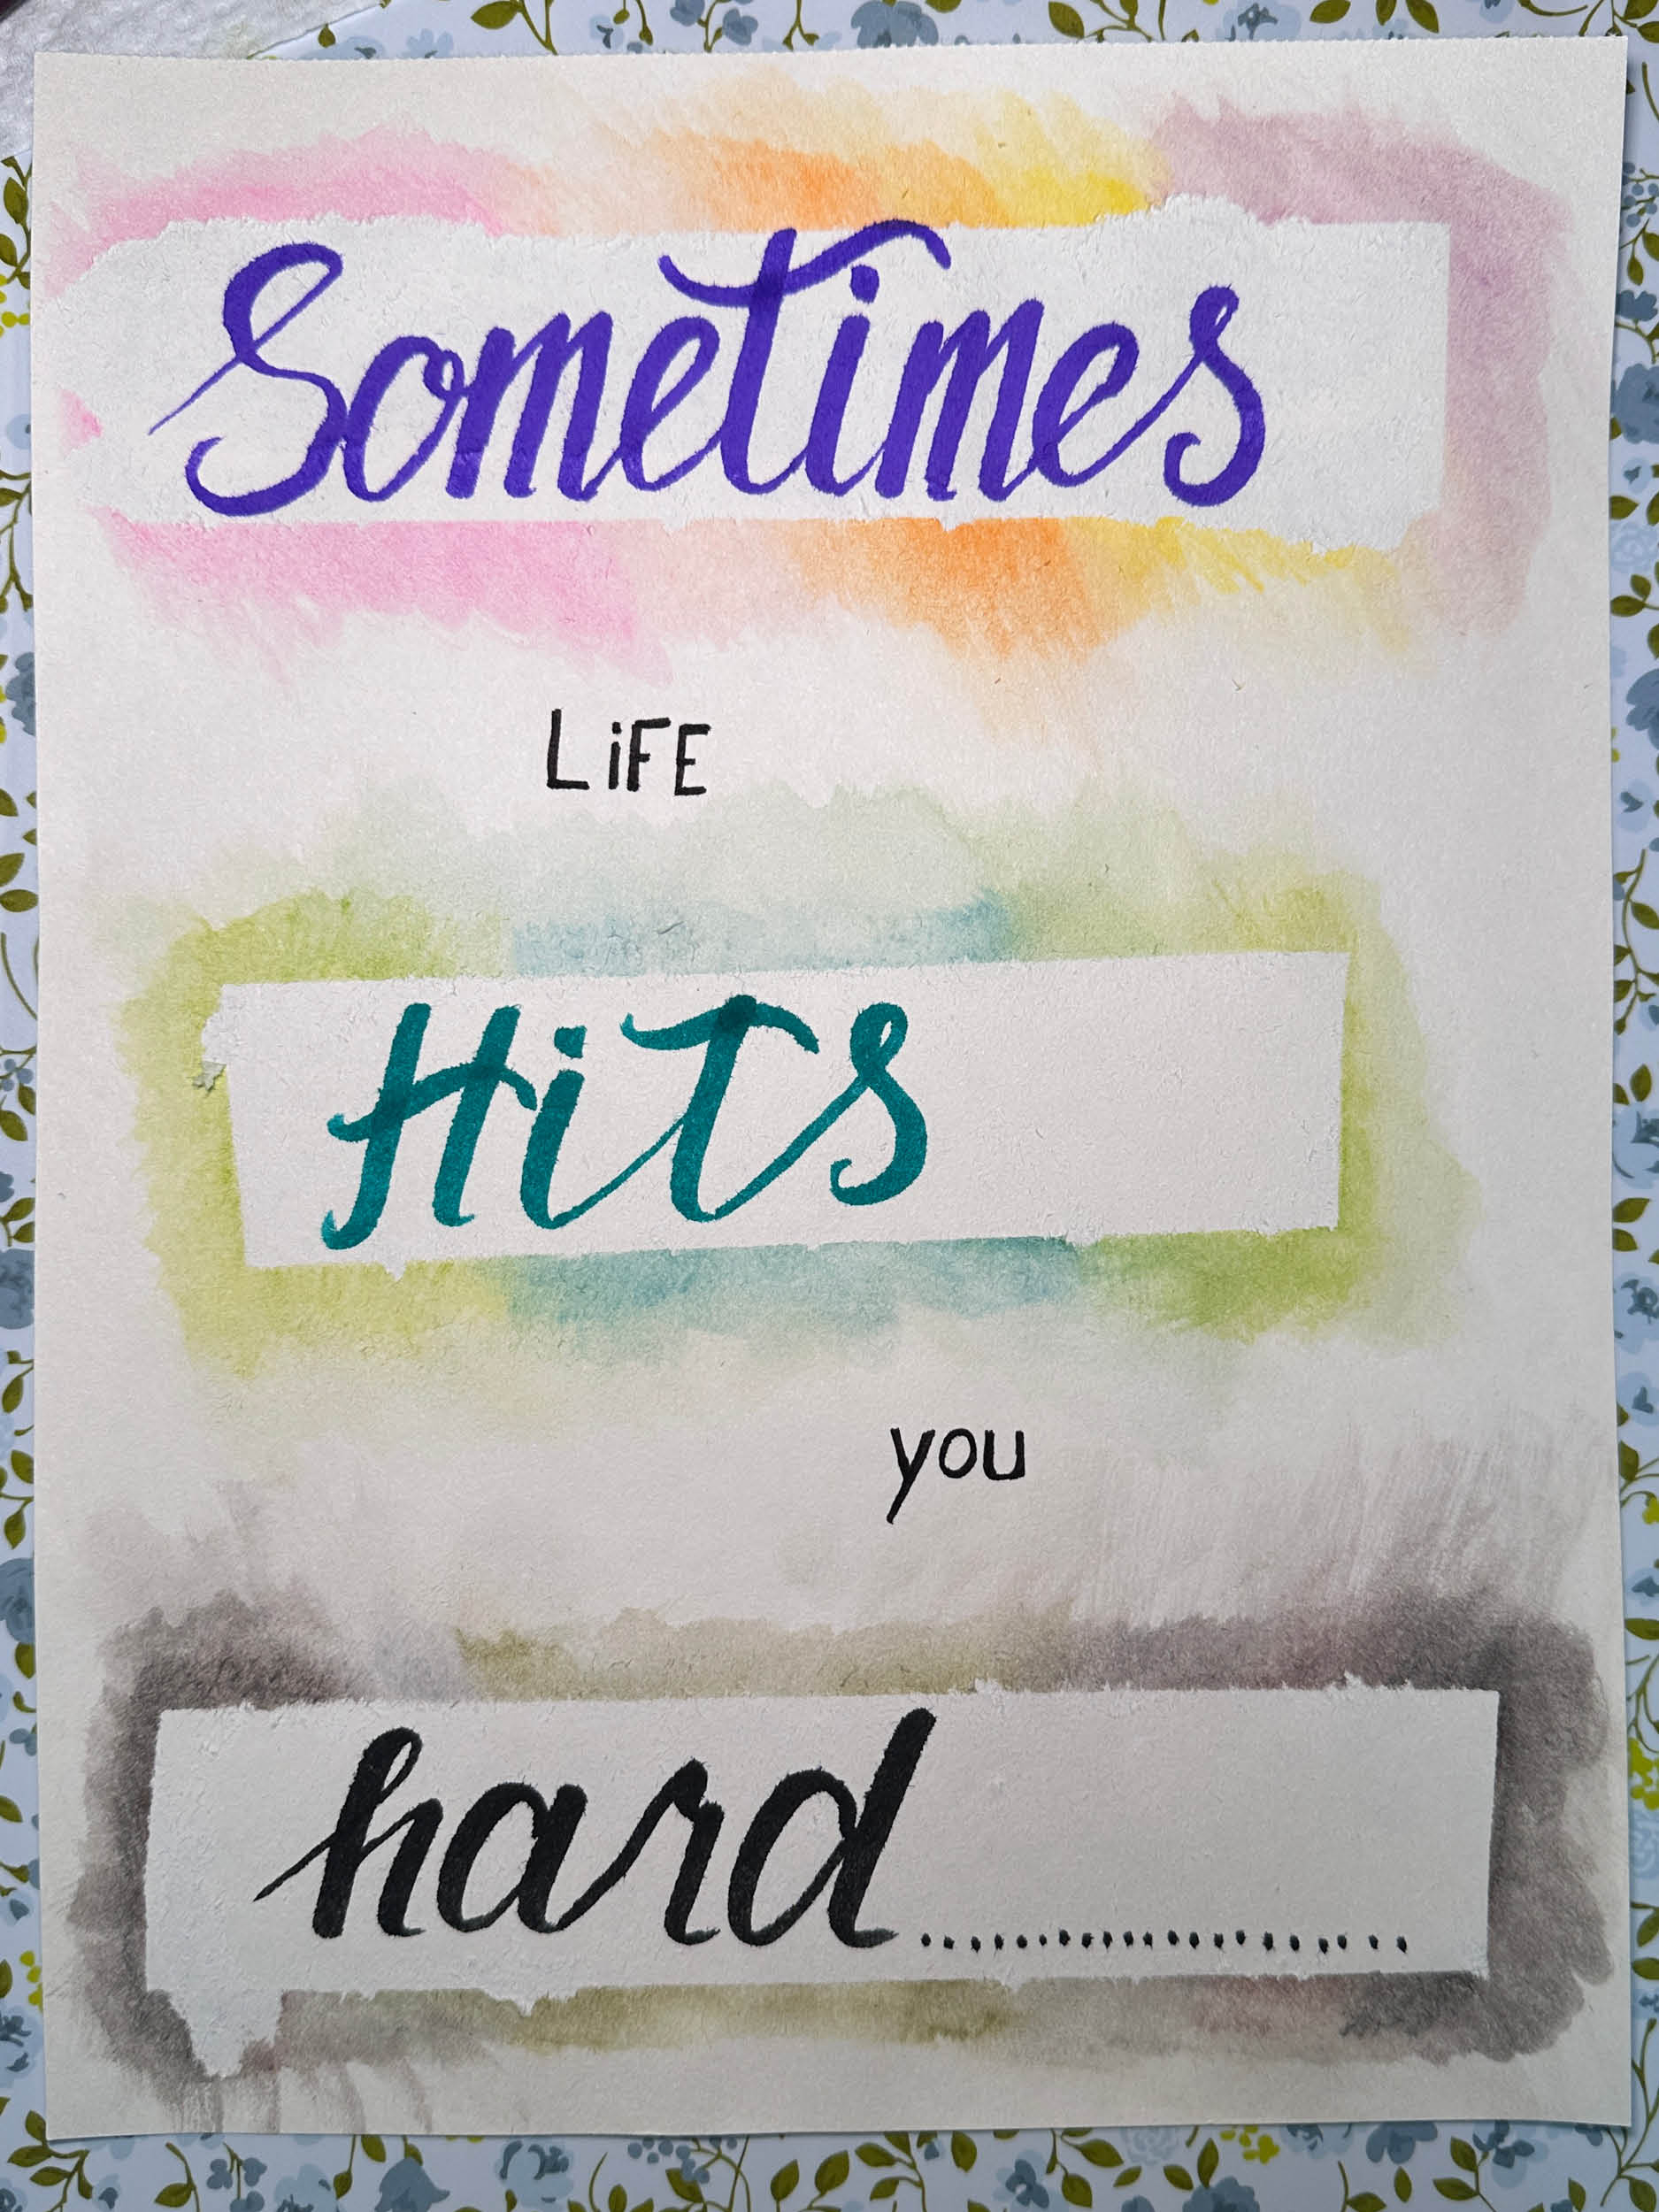 Sometimes
LiFE
HiTS
you
hard.......................